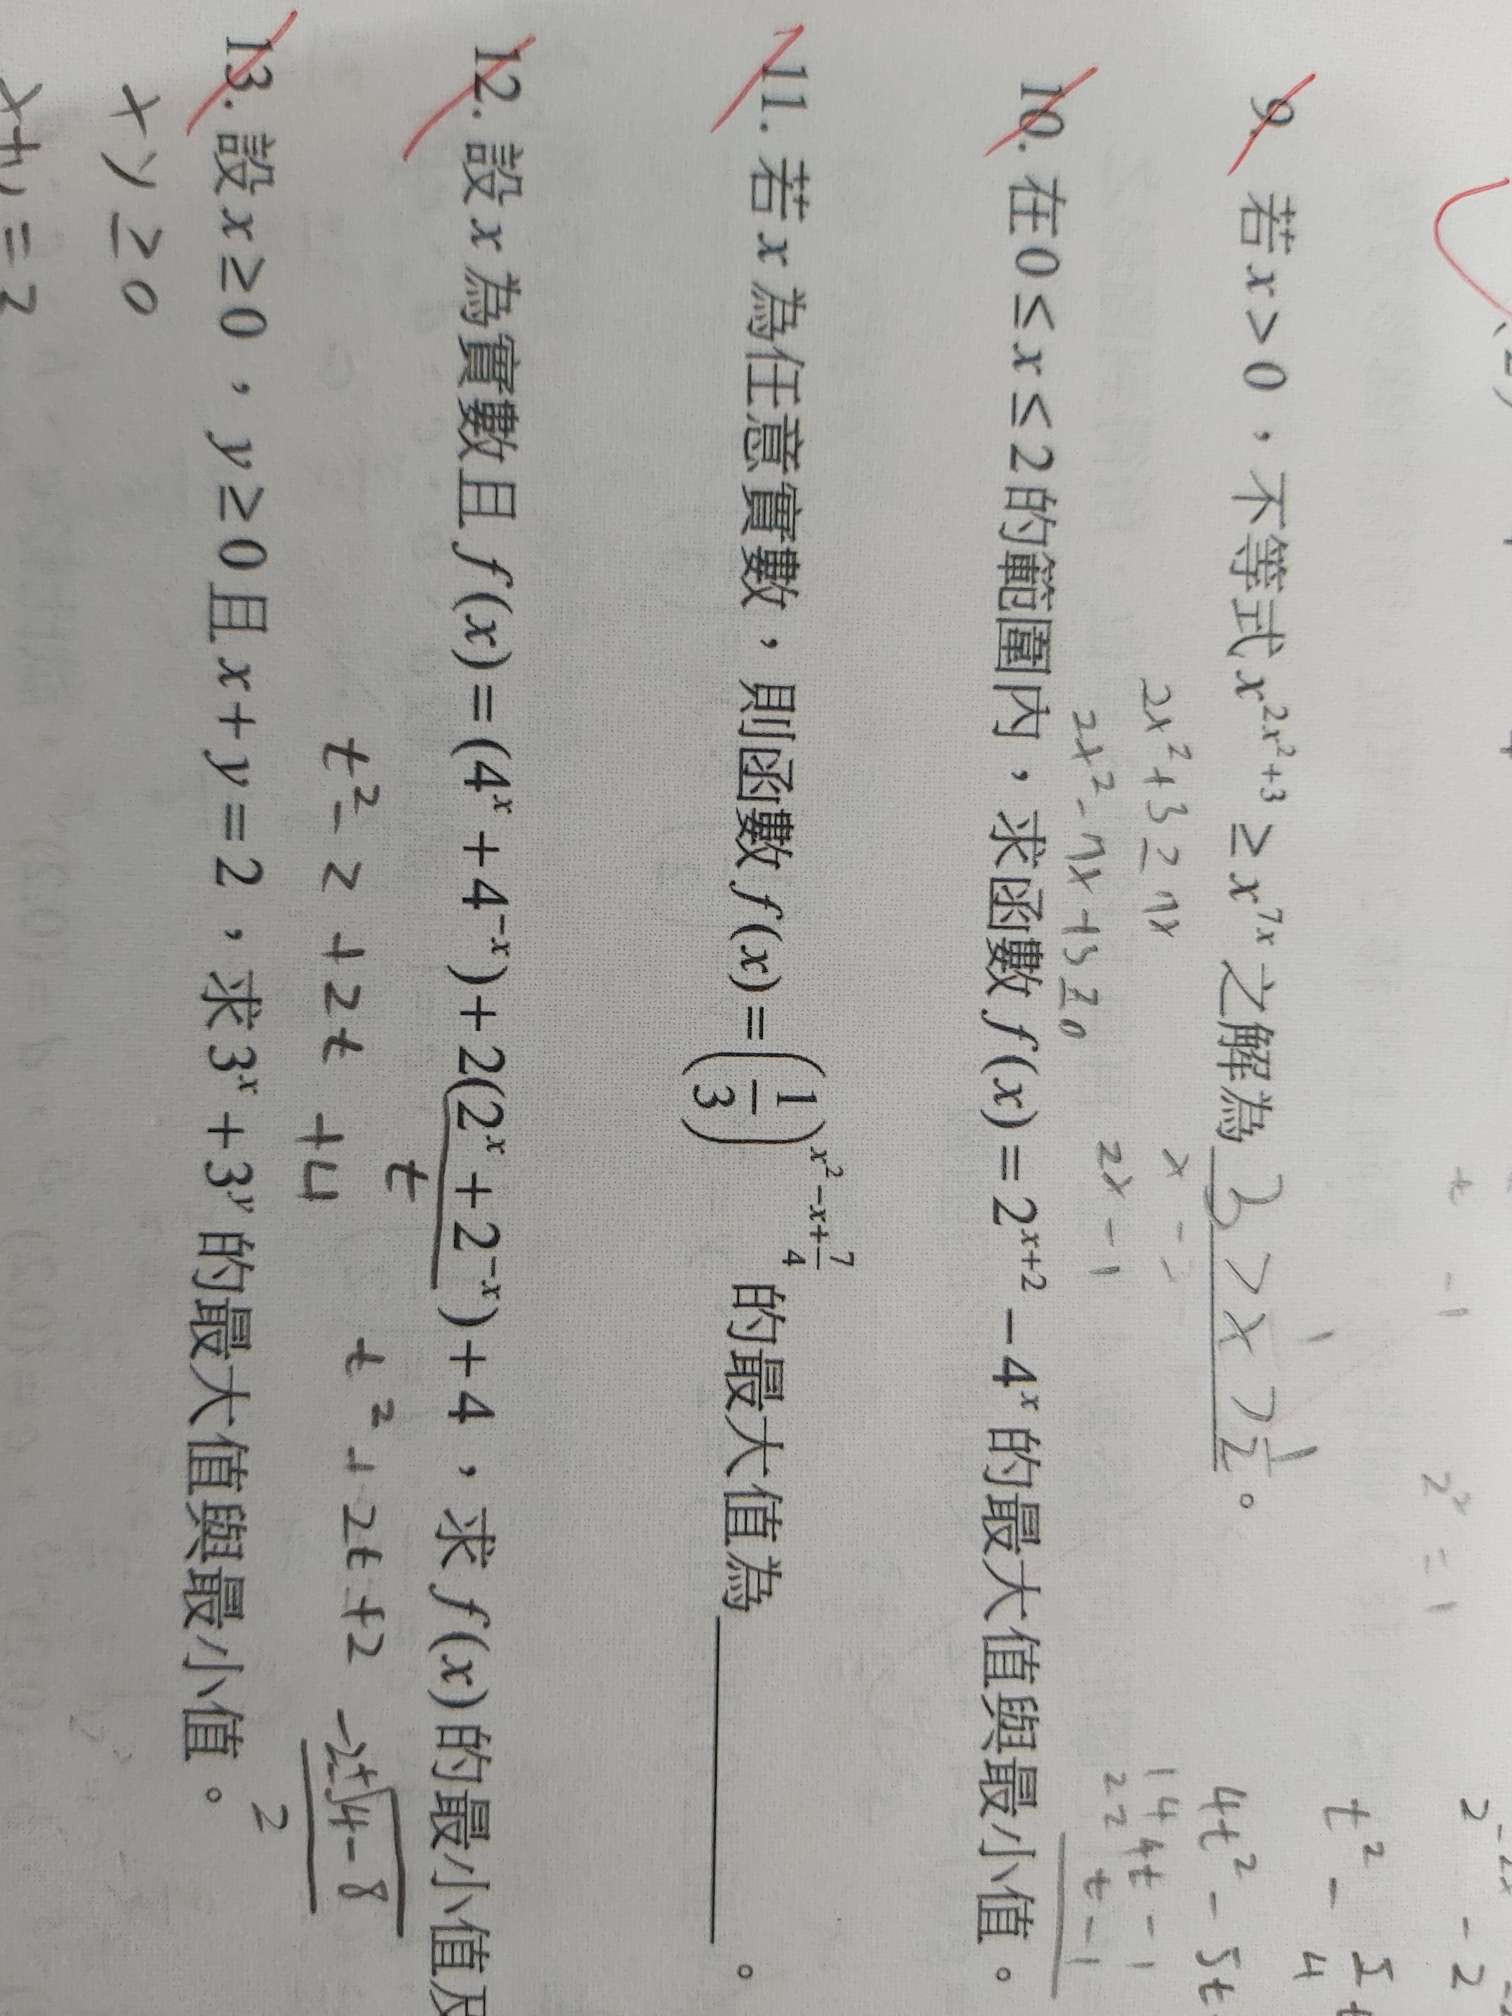 9. 若 x > 0，不等式 x^{2x^2+3} ≥ x^{7x} 之解為 3 > x > 1/2。
2x^2 + 3 ≥ 7x
2x^2 - 7x + 3 ≥ 0
2x - 1
10. 在 0 ≤ x ≤ 2 的範圍內，求函數 f(x) = 2^{x+2} - 4^x 的最大值與最小值。
11. 若 x 為任意實數，則函數 f(x) = (1/3)^{x^2-x+7/4} 的最大值為＿＿＿＿。
12. 設 x 為實數且 f(x) = (4^x + 4^{-x}) + 2(2^x + 2^{-x}) + 4，求 f(x) 的最小值及
t
t^2 - 2 + 2t + 4
t^2 + 2t + 2
13. 設 x ≥ 0，y ≥ 0 且 x + y = 2，求 3^x + 3^y 的最大值與最小值。
xy ≥ 0